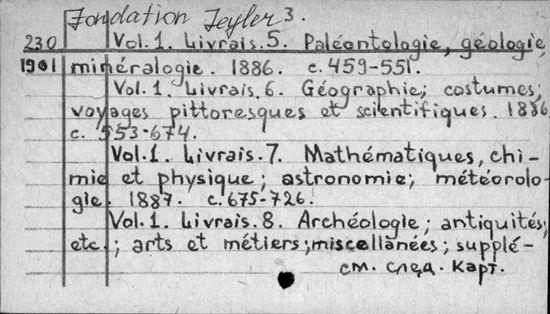 Fondation Teyler 3.
230 Vol. 1. Livrais. 5. Paléontologie, géologie,
1901 minéralogie. 1886. c. 459-551.
Vol. 1. Livrais. 6. Géographie; costumes;
voyages pittoresques et scientifiques. 1886.
c. 553-674.
Vol. 1. Livrais. 7. Mathématiques, chi-
mie et physique; astronomie; météorolo-
gie. 1887. c. 675-726.
Vol. 1. Livrais. 8. Archéologie; antiquités,
etc.; arts et métiers; miscellanées; supplé-
см. след. карт.